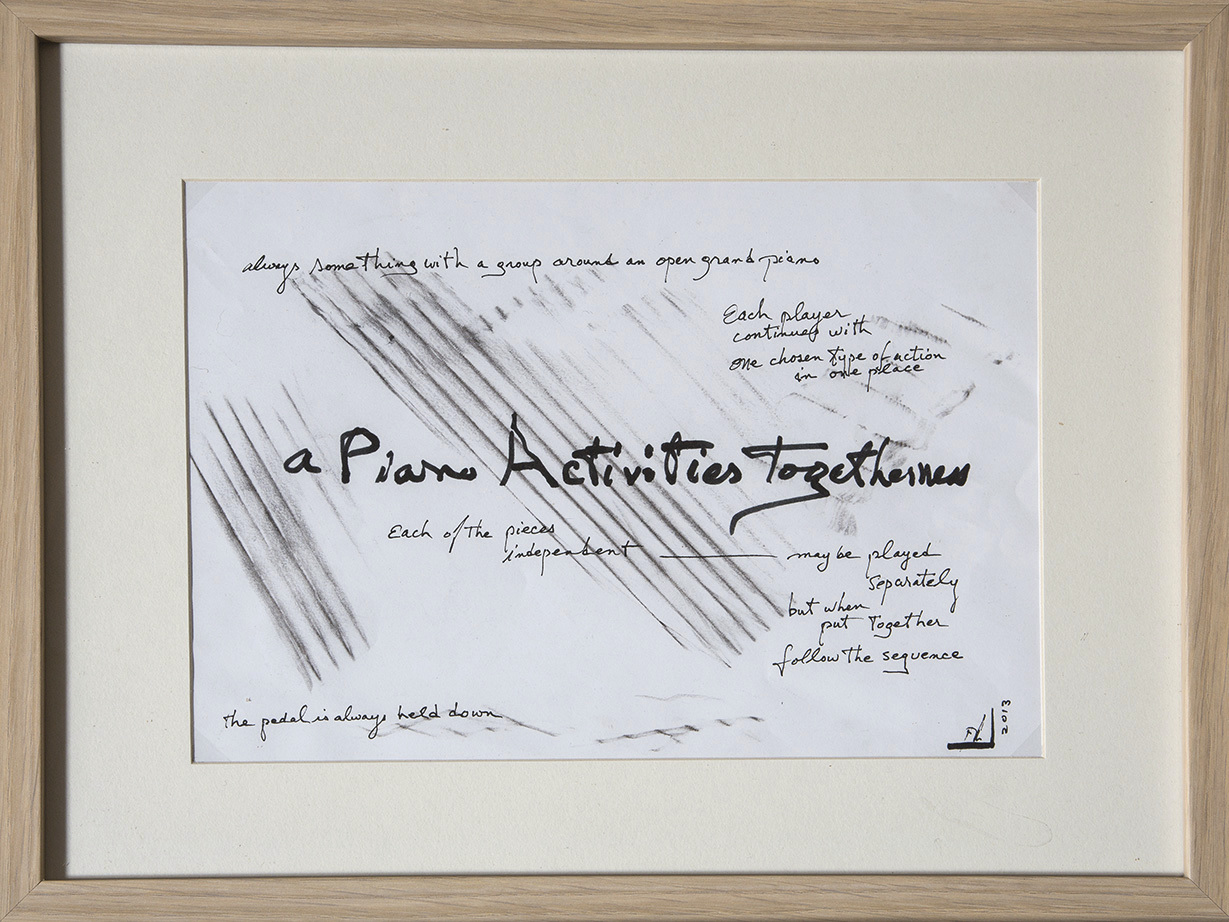 always something with a group around an open grand piano
Each player
continues with
one chosen type of action
in one place
a Piano Activities Togetherness
Each of the pieces
independent —— may be played
separately
but when
put together
follow the sequence
the pedal is always held down
2013